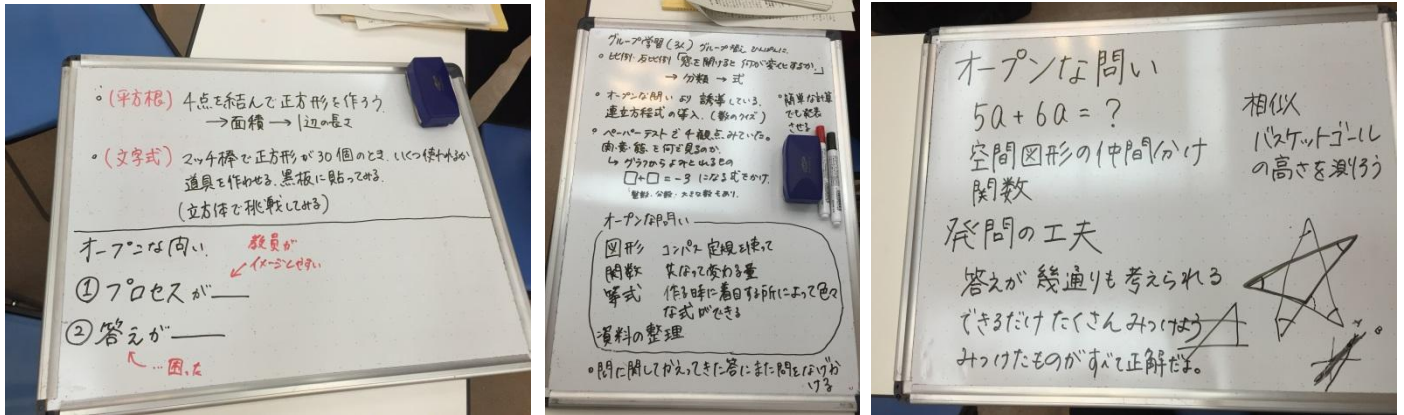 ・(平方根) 4点を結んで正方形を作ろう
→面積→1辺の長さ
・(文字式) マッチ棒で正方形が30個のとき、いくつ使われるか
道具を作わせる、黒板に貼ってみる。
(立方体で挑戦してみる)
オープンな問い
教員が
イメージしやすい
①プロセスが
②答えが
…困った
グループ学習(3人) グループ替え ひんぱんに
・比例・反比例「窓を開けると何が変化するか。」
→ 分類 → 式
・オープンな問いより誘導している。
連立方程式の導入。(数のクイズ)
・簡単な計算
でも発表
させる
・ペーパーテストで4観点みていた。
関・意・態を何で見るのか。
↳グラフからよみとれるもの
□+□=-3になる式をかけ。
整数・分数・大きな数もあり。
オープンな問い
図形 コンパス定規を使って
関数 ともなって変わる量
等式 作る時に着目する所によって色々
な式ができる
資料の整理
・問に関してかえってきた答にまた問をなげか
ける
オープンな問い
5a+6a=?
空間図形の仲間分け
関数
相似
バスケットゴール
の高さを測ろう
発問の工夫
答えが幾通りも考えられる
できるだけたくさんみつけよう
みつけたものがすべて正解だよ。